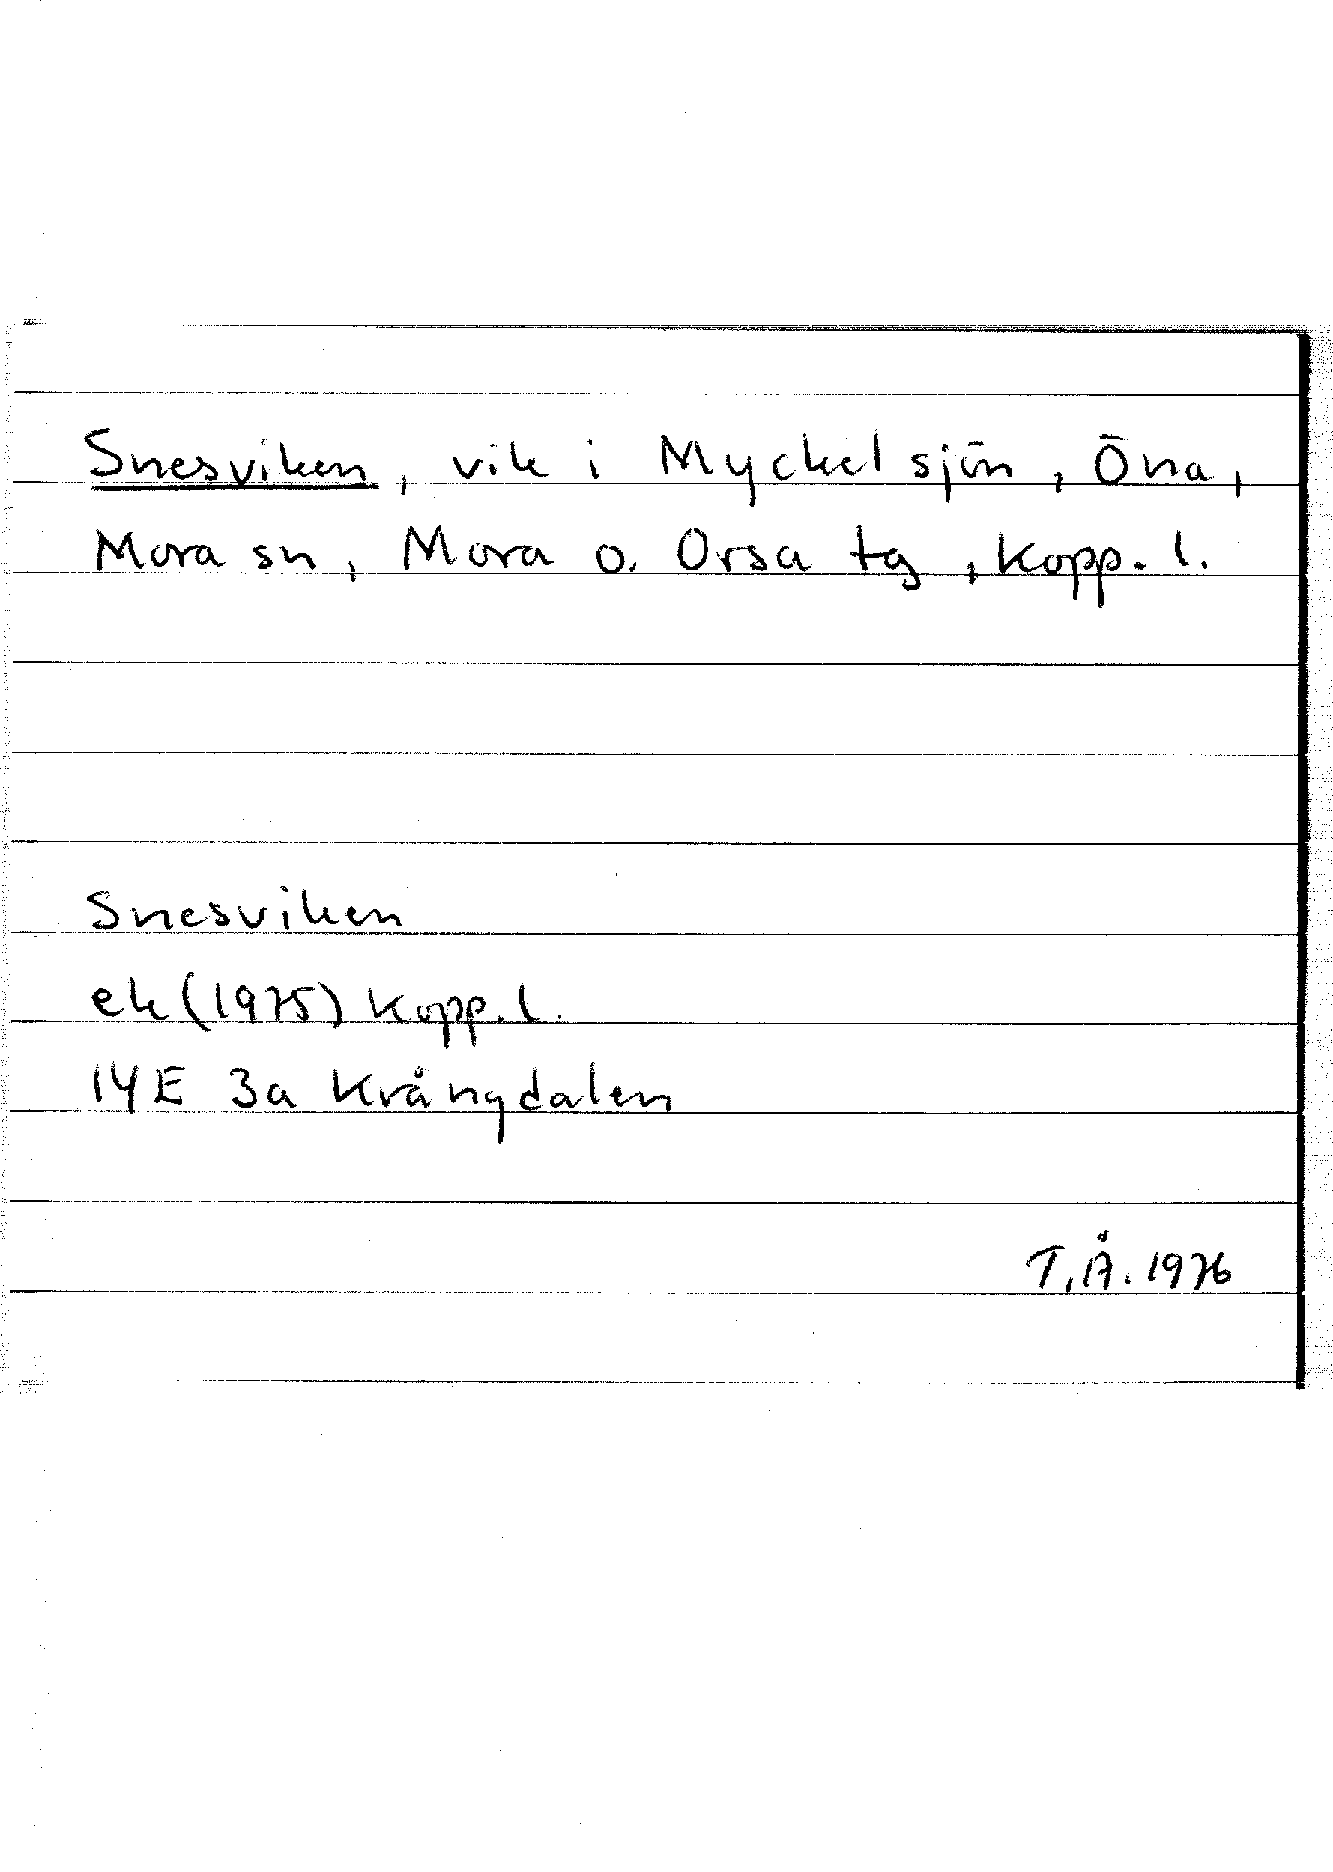 Snesviken, vik i Myckelsjön, Öna,
Mora sn, Mora o. Orsa tg, Kopp. l.
Snesviken
ek (1975) Kopp. l.
14E 3a Krångdalen
T.Å. 1976